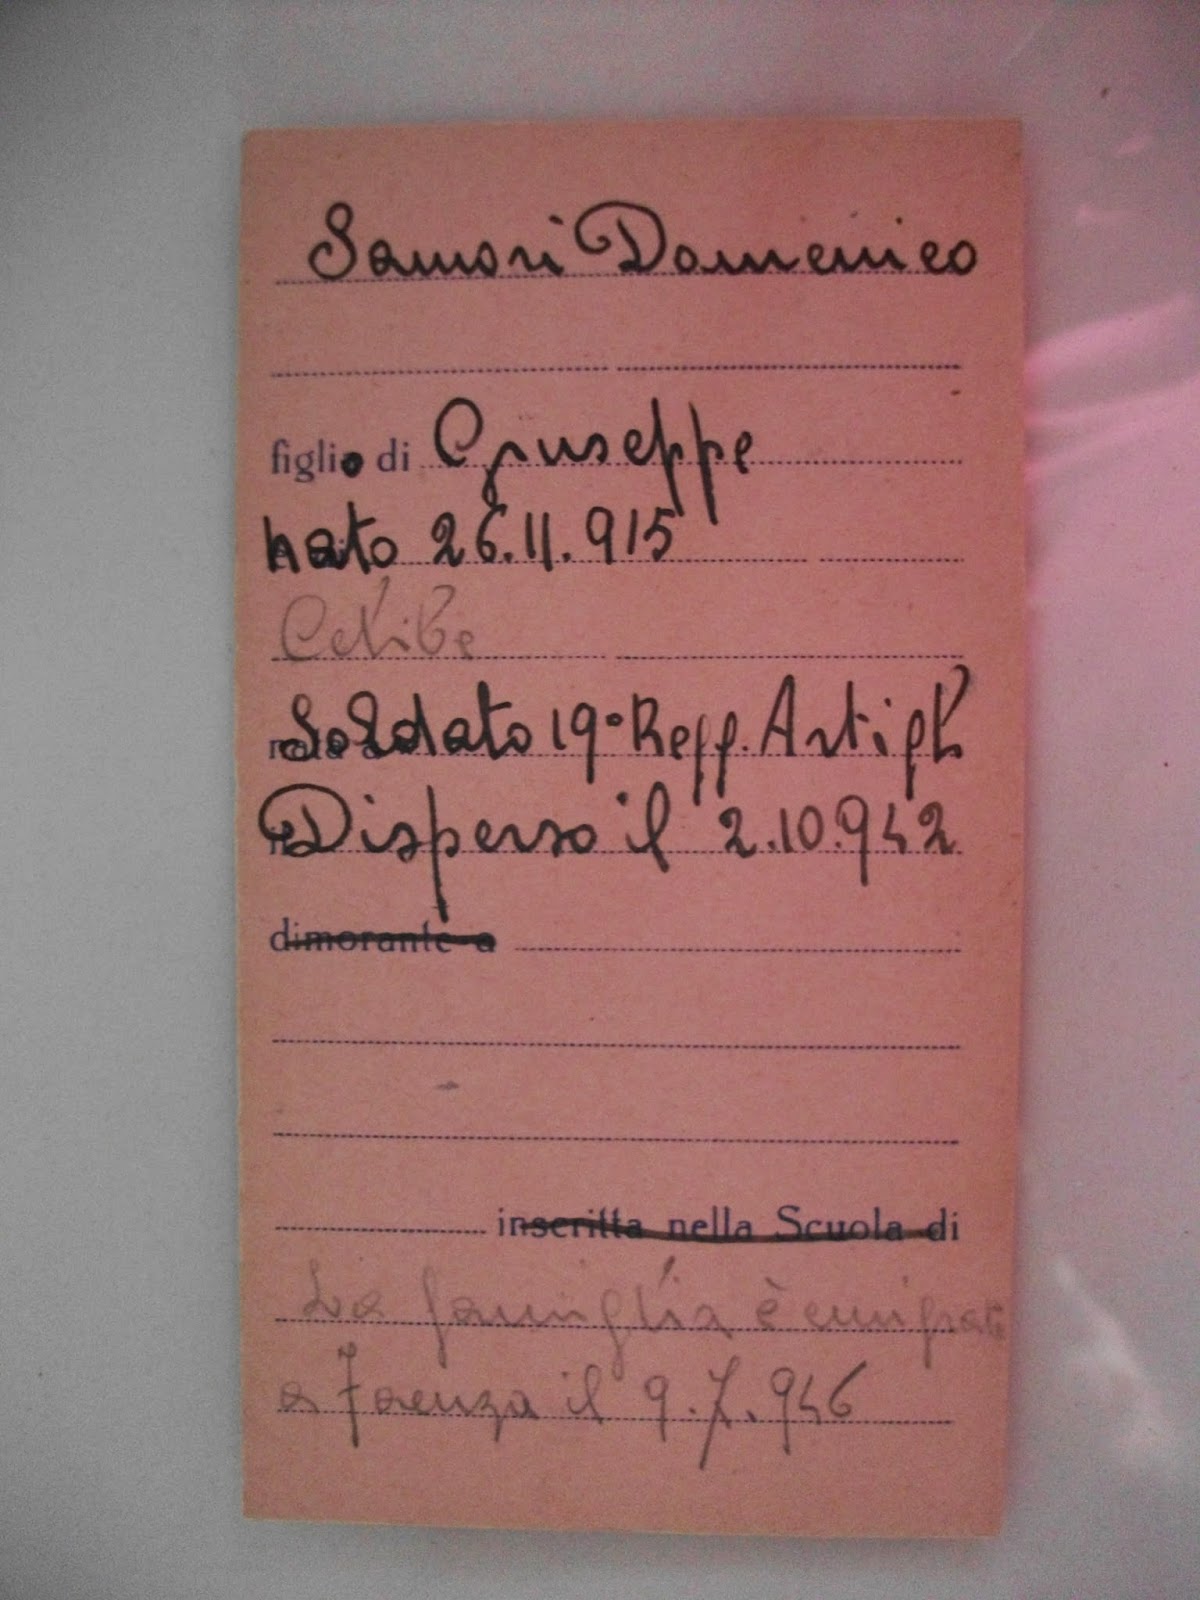 Samorì Domenico
figlio di Giuseppe
nato 26.11.915
Celibe
Soldato 19° Regg. Artigl
Disperso il 2.10.942
dimorante a
inscritta nella Scuola di
La famiglia è emigrata
a Faenza il 9.7.946